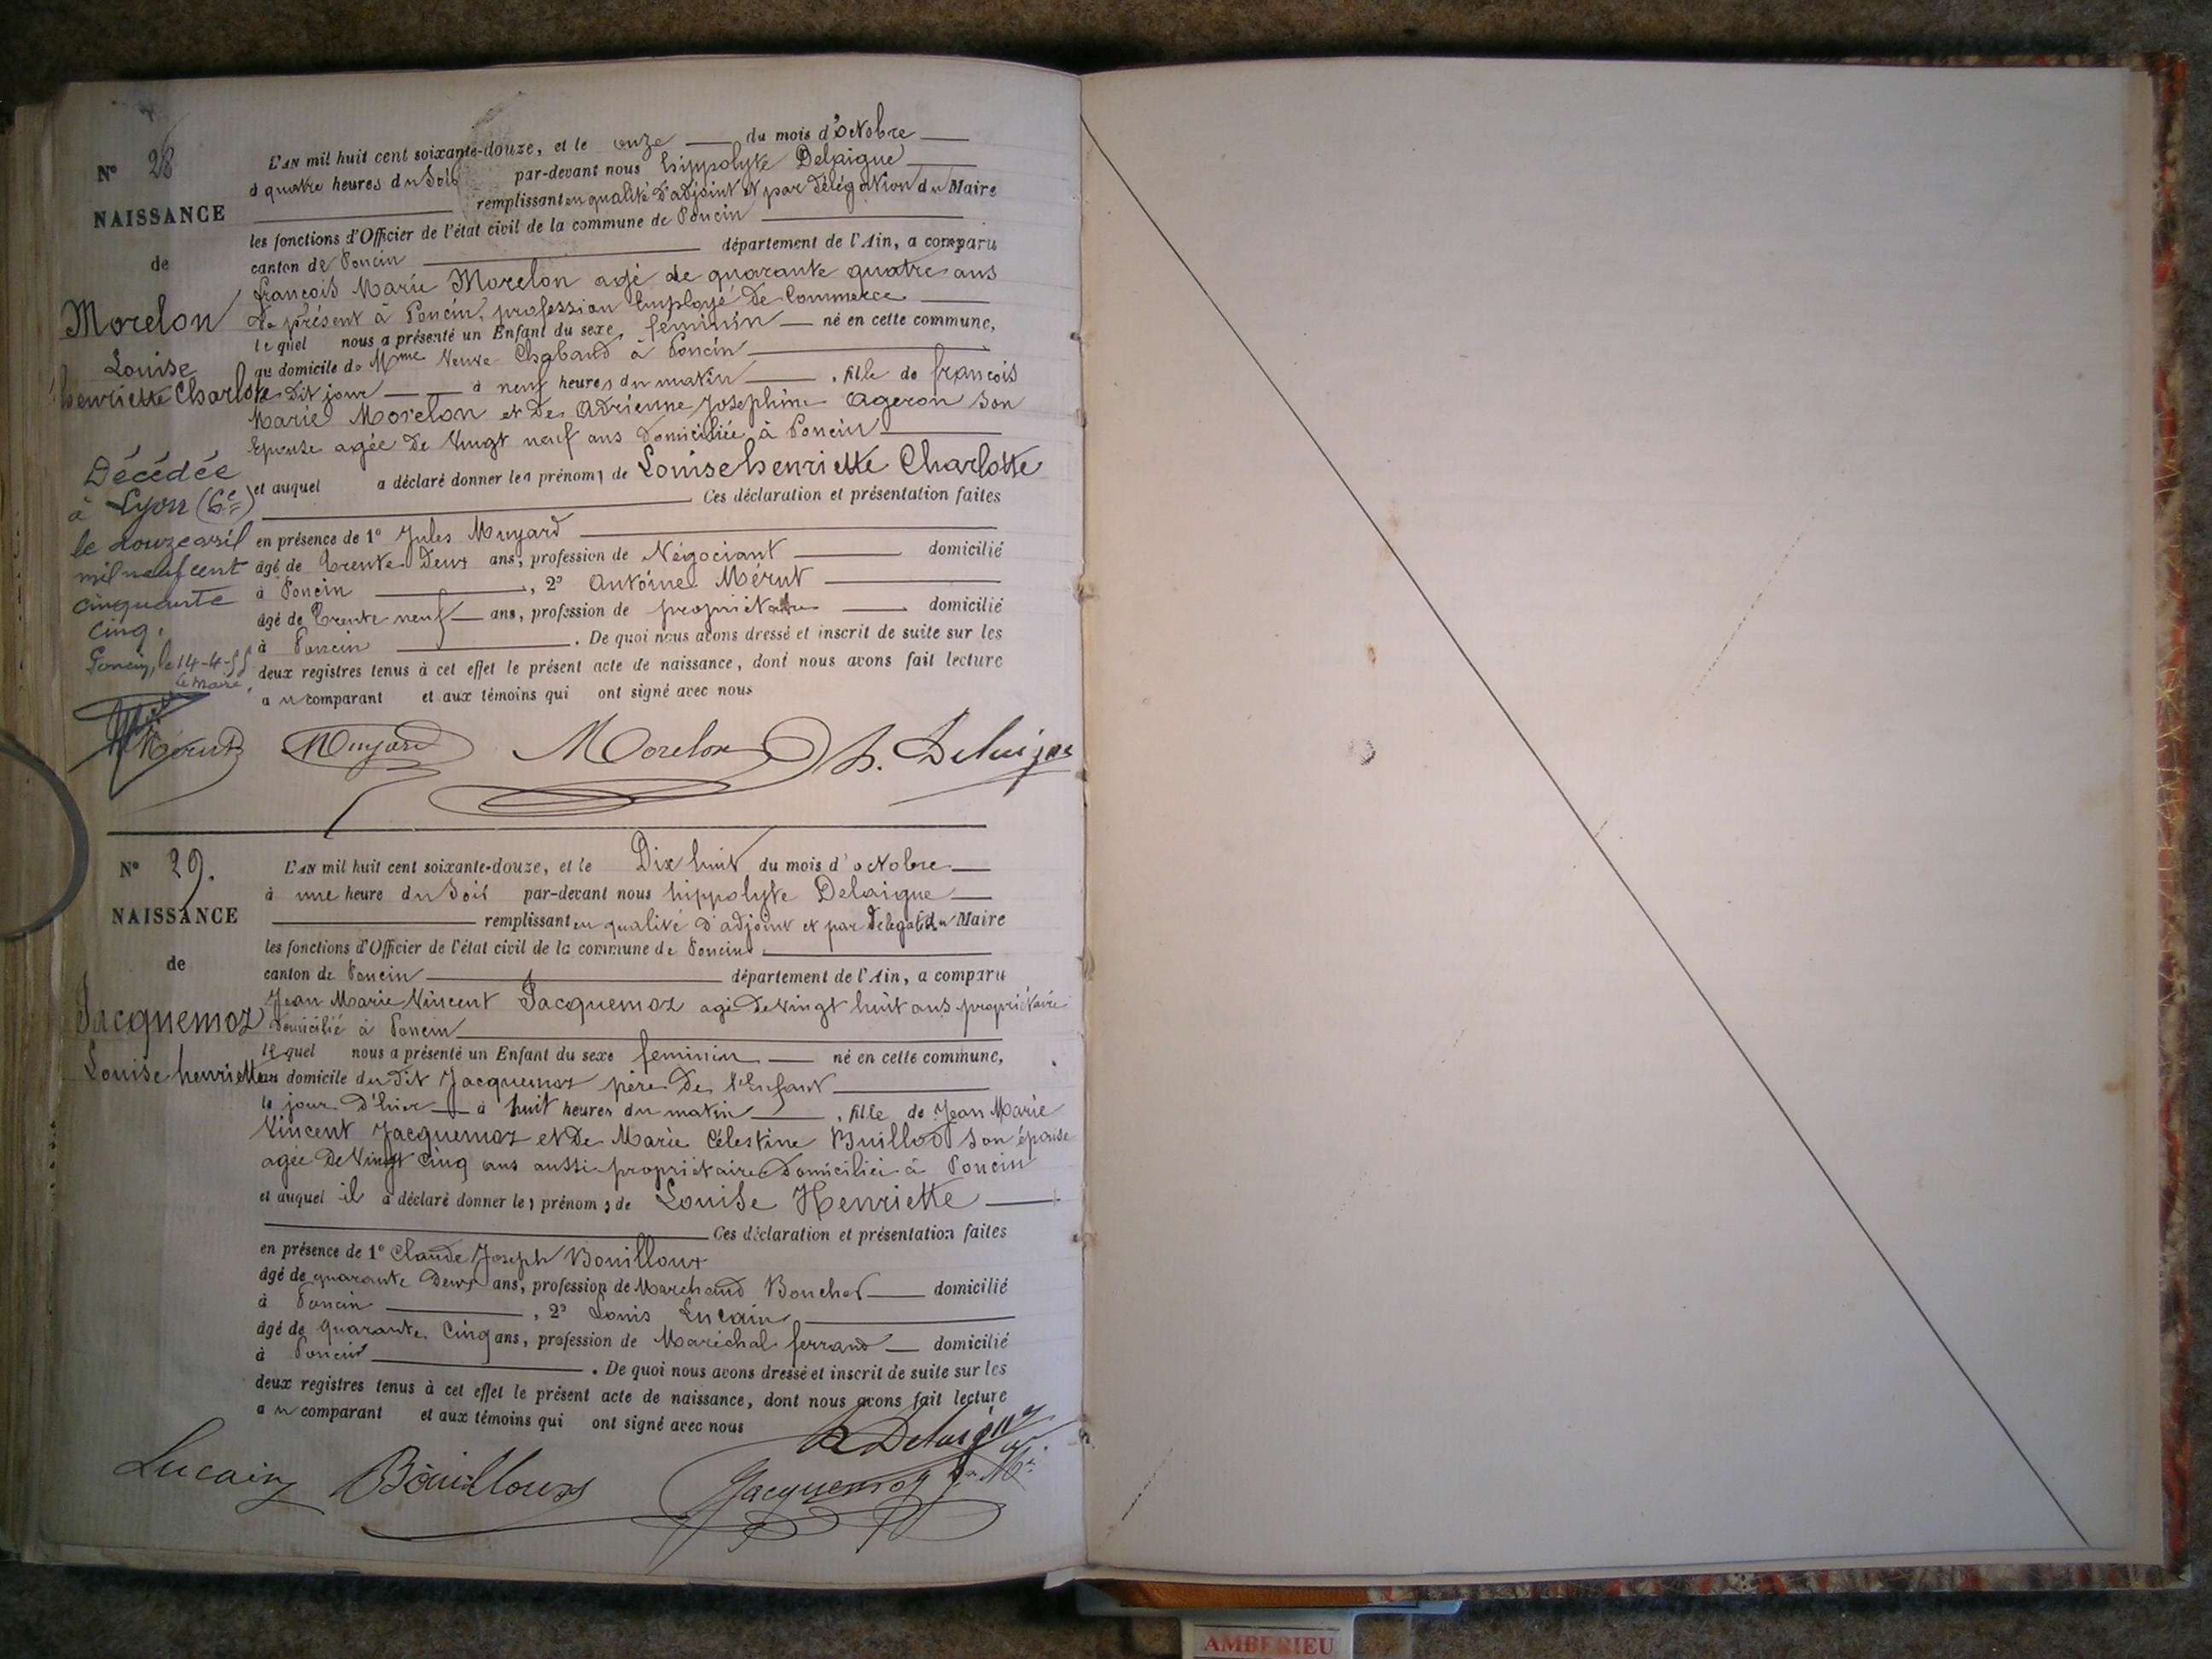 N° 28
NAISSANCE
de
Morelon
Louise
henriette Charlotte
Décédée
à Lyon (6e)
le douze avril
mil neuf cent
cinquante
cinq.
Poncin, le 14-4-55
Le Maire,
L'AN mil huit cent soixante-douze, et le onze du mois d'octobre
à quatre heures du Soir par-devant nous hippolyte Delaigue
remplissant en qualité d'adjoint et par délégation du Maire
les fonctions d'Officier de l'état civil de la commune de Poncin
canton de Poncin département de l'Ain, a comparu
françois Marie Morelon agé de quarante quatre ans
de présent à Poncin, profession Employé de Commerce
lequel nous a présenté un Enfant du sexe féminin né en cette commune,
au domicile de Mme Veuve Chaband à Poncin
dit jour à neuf heures du matin, fille de françois
Marie Morelon et de Adrienne Josephine Ageron son
Epouse agée de Vingt neuf ans domiciliée à Poncin
et auquel a déclaré donner les prénoms de Louise henriette Charlotte
Ces déclaration et présentation faites
en présence de 1° Jules Muyard
âgé de trente deux ans, profession de Négociant domicilié
à Poncin, 2° Antoine Mérut
âgé de trente neuf ans, profession de propriétaire domicilié
à Poncin. De quoi nous avons dressé et inscrit de suite sur les
deux registres tenus à cet effet le présent acte de naissance, dont nous avons fait lecture
au comparant et aux témoins qui ont signé avec nous
Mérut Muyard Morelon h. Delaigue
N° 29.
NAISSANCE
de
Jacquemoz
Louise henriette
L'AN mil huit cent soixante-douze, et le Dix huit du mois d'octobre
à une heure du Soir par-devant nous hippolyte Delaigue
remplissant en qualité d'adjoint et par délégat. du Maire
les fonctions d'Officier de l'état civil de la commune de Poncin
canton de Poncin département de l'Ain, a comparu
Jean Marie Vincent Jacquemoz agé de Vingt huit ans propriétaire
domicilié à Poncin
lequel nous a présenté un Enfant du sexe feminin né en cette commune,
au domicile du dit Jacquemoz père de l'Enfant
le jour d'hier à huit heures du matin, fille de Jean Marie
Vincent Jacquemoz et de Marie Célestine Buillod son épouse
agée de Vingt cinq ans aussi propriétaire domiciliée à Poncin
et auquel il a déclaré donner les prénoms de Louise Henriette
Ces déclaration et présentation faites
en présence de 1° Claude Joseph Bouilloux
âgé de quarante deux ans, profession de Marchand Boucher domicilié
à Poncin, 2° Louis Lucain
âgé de quarante cinq ans, profession de Maréchal ferrand domicilié
à Poncin. De quoi nous avons dressé et inscrit de suite sur les
deux registres tenus à cet effet le présent acte de naissance, dont nous avons fait lecture
au comparant et aux témoins qui ont signé avec nous
h Delaigue
Lucain Bouilloux Jacquemoz
AMBERIEU